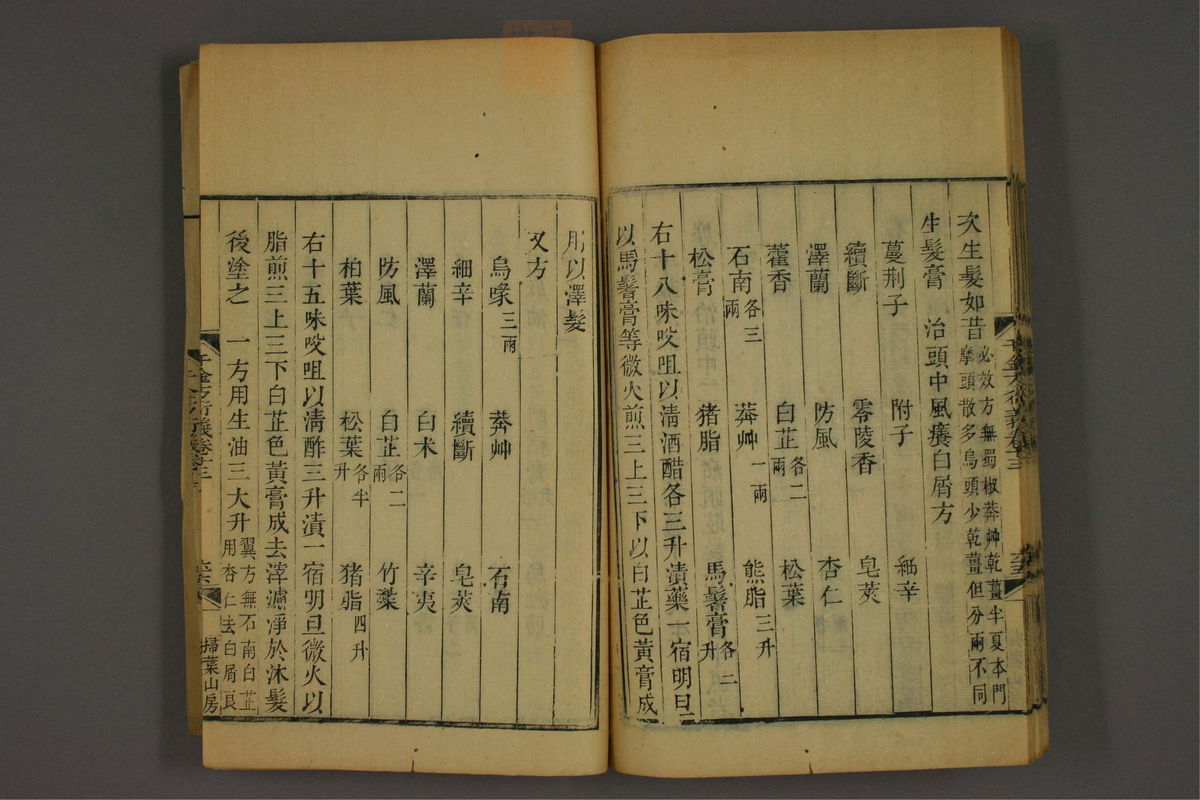 次生髮如昔必效方無蜀椒莽艸乾薑半夏本門摩頭散多烏頭少乾薑但分兩不同
生髮膏 治頭中風癢白屑方
蔓荆子 附子 細辛
續斷 零陵香 皂莢
澤蘭 防風 杏仁
藿香 白芷各二兩 松葉
石南各三兩 莽艸一兩 熊脂三升
松膏 猪脂 馬鬐膏各二升
右十八味㕮咀以清酒醋各三升漬藥一宿明旦
以馬鬐膏等微火煎三上三下以白芷色黃膏成
用以澤髮
又方
烏喙三兩 莽艸 石南
細辛 續斷 皂莢
澤蘭 白术 辛夷
防風 白芷各二兩 竹葉
柏葉 松葉各半升 猪脂四升
右十五味㕮咀以清酢三升漬一宿明旦微火以
脂煎三上三下白芷色黃膏成去滓濾淨於沐髮
後塗之 一方用生油三大升翼方無石南白芷用杏仁去白屑良
千金方衍義卷十三
掃葉山房